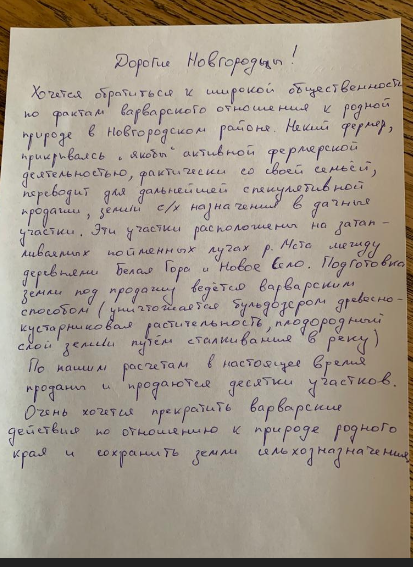 Дорогие Новгородцы!
Хочется обратиться к широкой общественности
по фактам варварского отношения к родной
природе в Новгородском районе. Некий фермер,
прикрываясь "якобы" активной фермерской
деятельностью, фактически со своей семьёй,
переводит для дальнейшей спекулятивной
продажи, земли с/х назначения в дачные
участки. Эти участки расположены на затап-
ливаемых пойменных лугах р. Мста между
деревнями Белая Гора и Новое Село. Подготовка
земли под продажу ведётся варварским
способом (уничтожается бульдозером древесно-
кустарниковая растительность, плодородный
слой земли путём сталкивания в реку)
По нашим расчетам в настоящее время
проданы и продаются десятки участков.
Очень хочется прекратить варварские
действия по отношению к природе родного
края и сохранить земли сельхозназначения